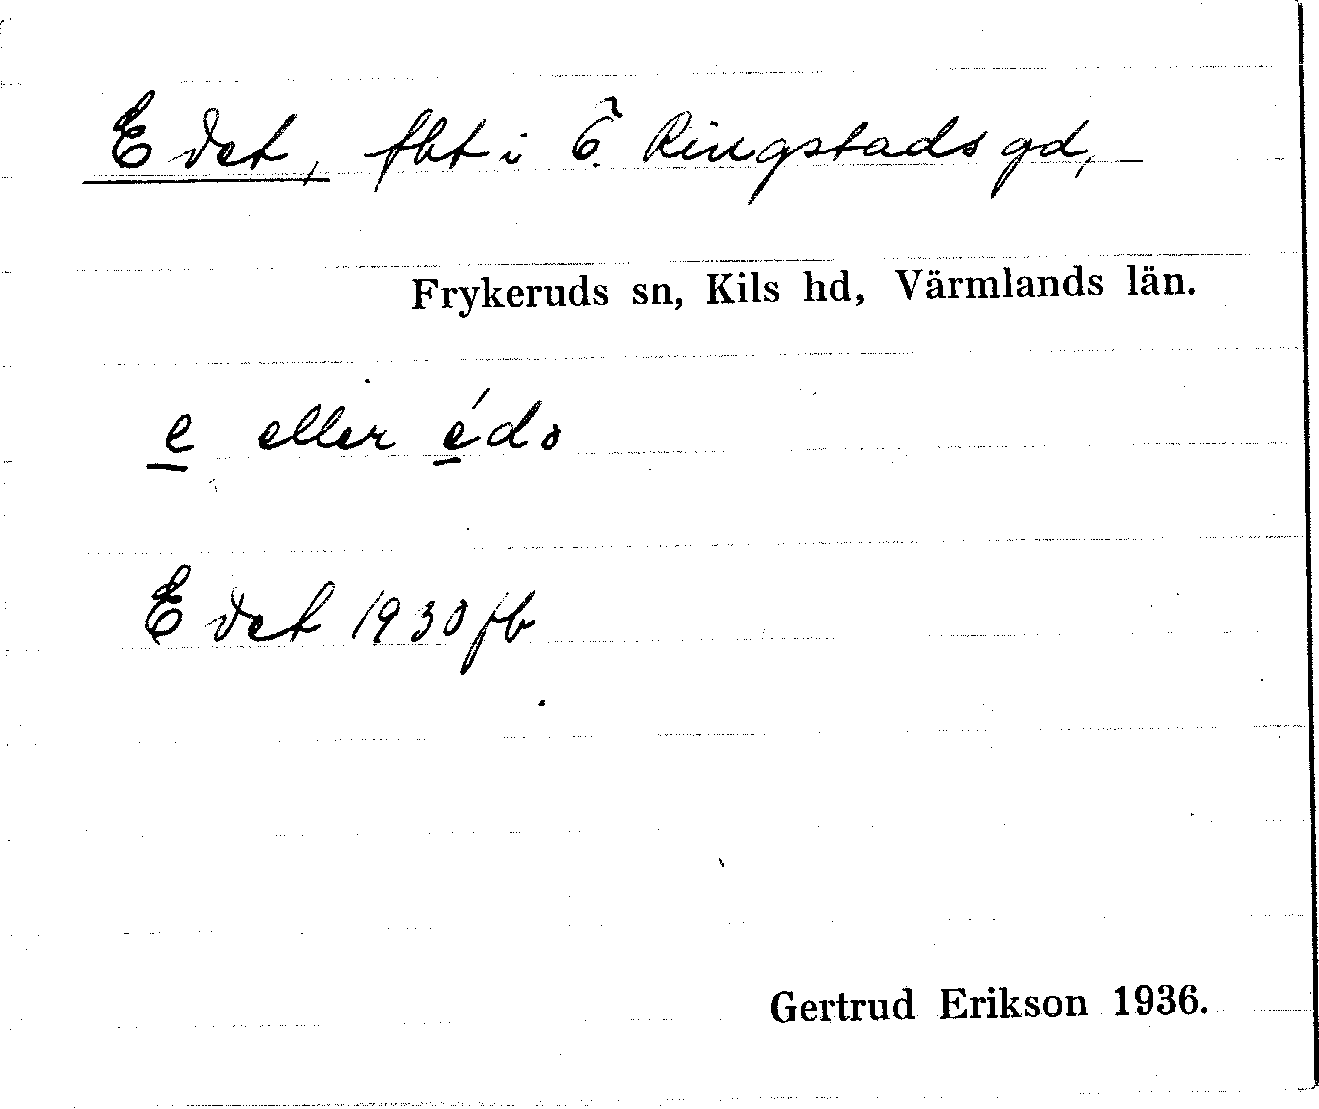 Edet, fbt i Ö. Ringstads gd,
Frykeruds sn, Kils hd, Värmlands län.
e eller édə
Edet 1930 fb
Gertrud Erikson 1936.